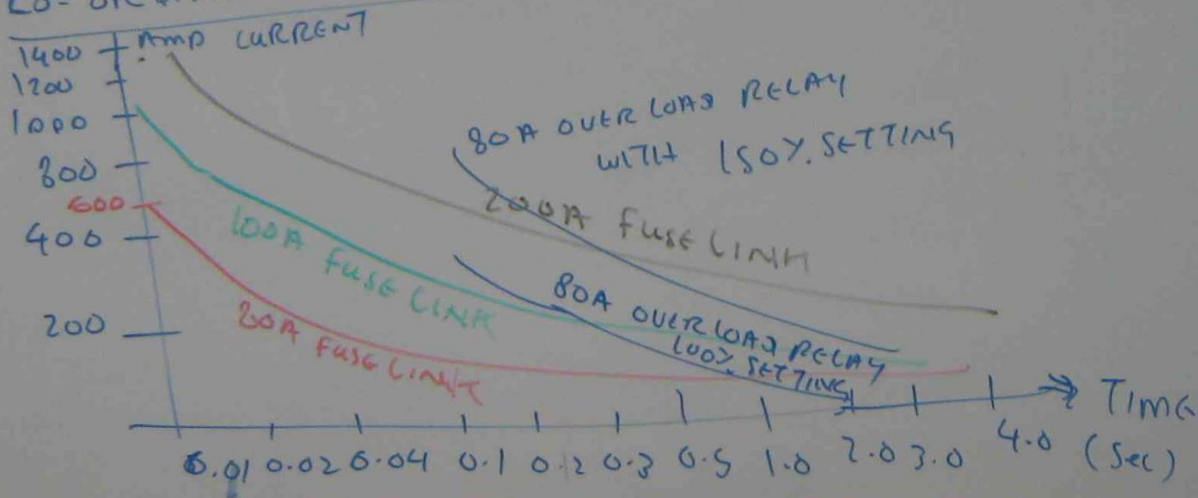 1400 AMP CURRENT
1200
1000
800
600
400
200
80A OVERLOAD RELAY
WITH 150% SETTING
200A FUSE LINK
100A FUSE LINK
80A OVERLOAD RELAY
100% SETTING
80A FUSE LINK
0.01 0.02 0.04 0.1 0.2 0.3 0.5 1.0 2.0 3.0 4.0
TIME
(Sec)